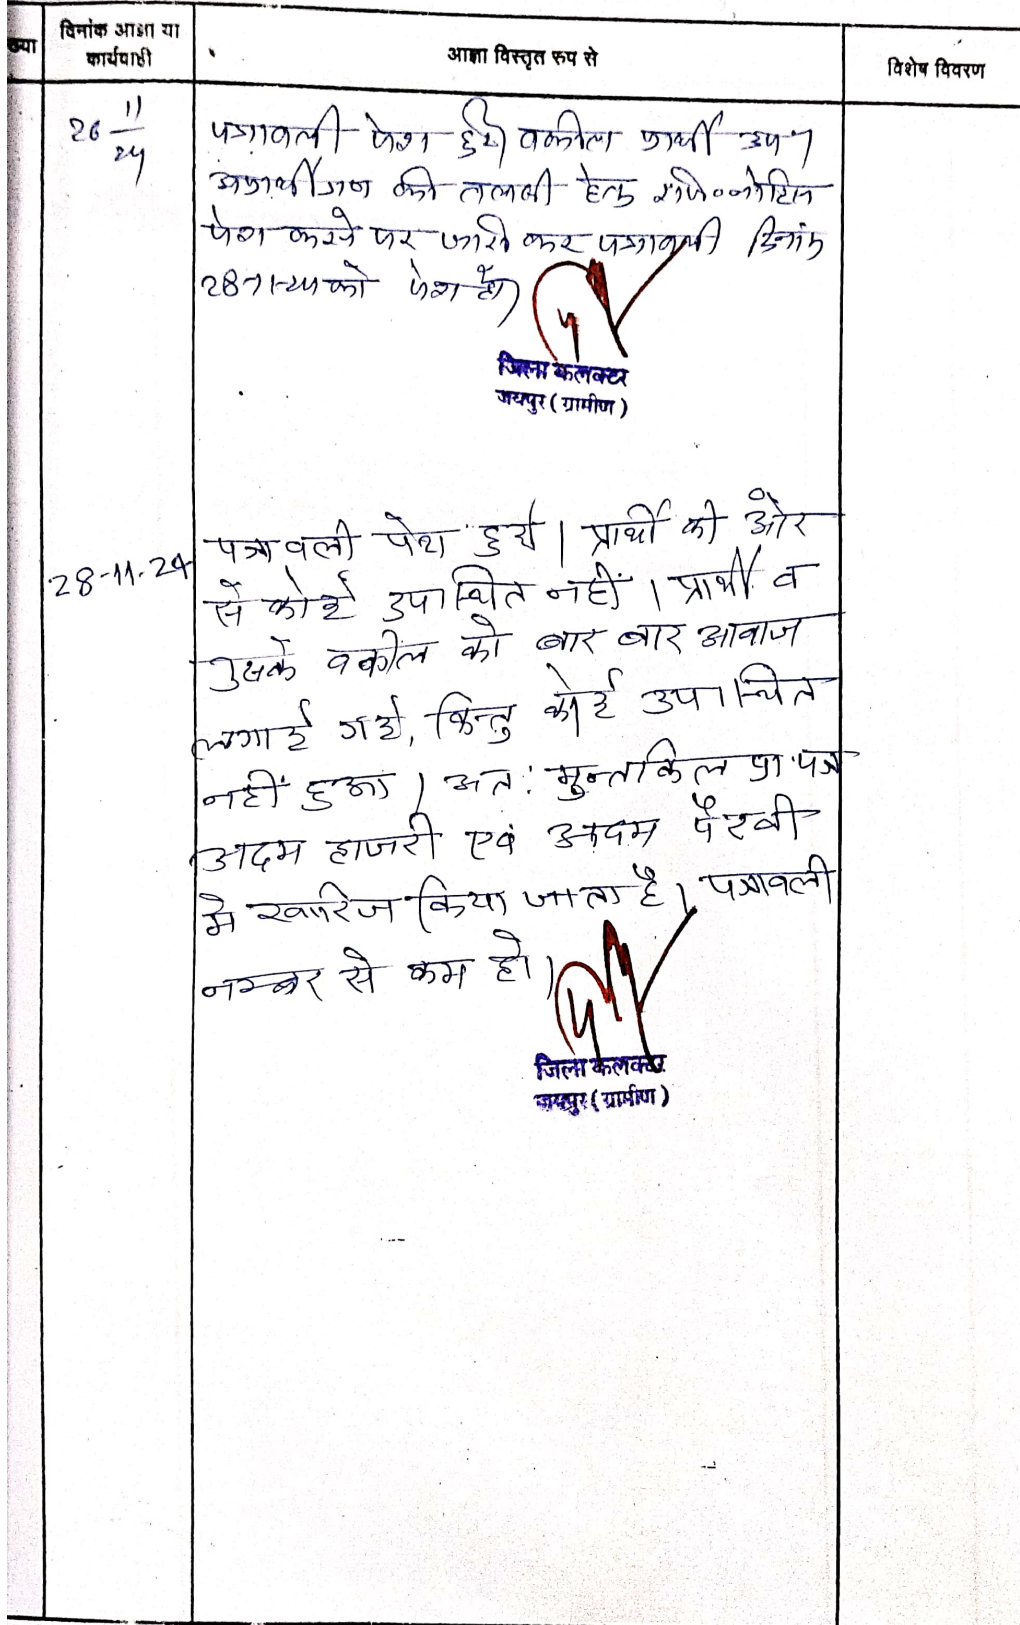 ख्या
दिनांक आज्ञा या
कार्यवाही
आज्ञा विस्तृत रुप से
विशेष विवरण
26 11/24
पत्रावली पेश हुई। वकील प्रार्थी उप०।
अप्रार्थीगण की तलबी हेतु रजि० नोटिस
पेश करने पर जारी कर पत्रावली दिनांक
28-11-24 को पेश हो।
जिला कलक्टर
जयपुर (ग्रामीण)
28-11-24
पत्रावली पेश हुई। प्रार्थी की ओर
से कोई उपस्थित नहीं। प्रार्थी व
उसके वकील को बार बार आवाज
लगाई गई, किन्तु कोई उपस्थित
नहीं हुआ। अतः मुन्तकिल प्रा.पत्र
अदम हाजरी एवं अदम पैरवी
मे खारिज किया जाता है। पत्रावली
नम्बर से कम हो।
जिला कलक्टर
जयपुर (ग्रामीण)